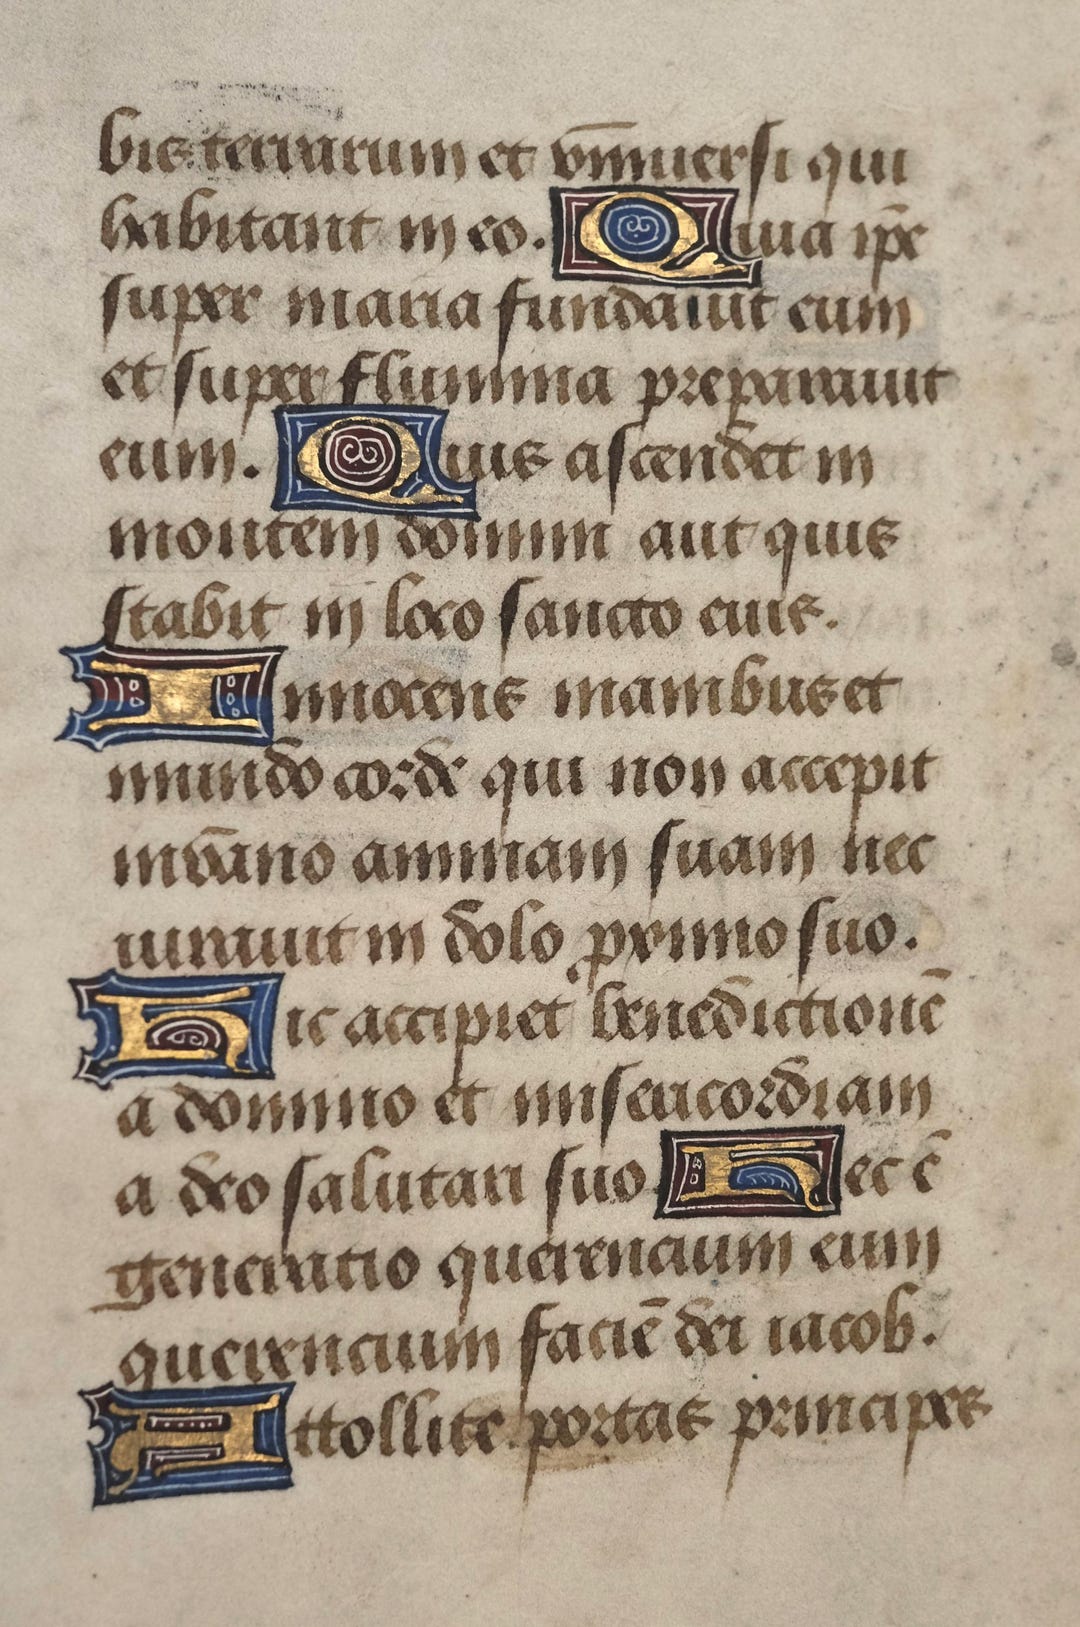 bis terrarum et vn̄iuersi qui
habitant in eo. Quia ip̄e
super maria fundauit eum
et super flumina preparauit
eum. Quis ascendet in
montem domini aut quis
stabit in loco sancto eius.
Innocens manibus et
mundo corde qui non accepit
in vano animam suam nec
iurauit in dolo proximo suo.
Hic accipiet benedictionē
a domino et misericordiam
a deo salutari suo. Hec ē
generatio querencium eum
querencium faciē dei iacob.
Attollite portas principes